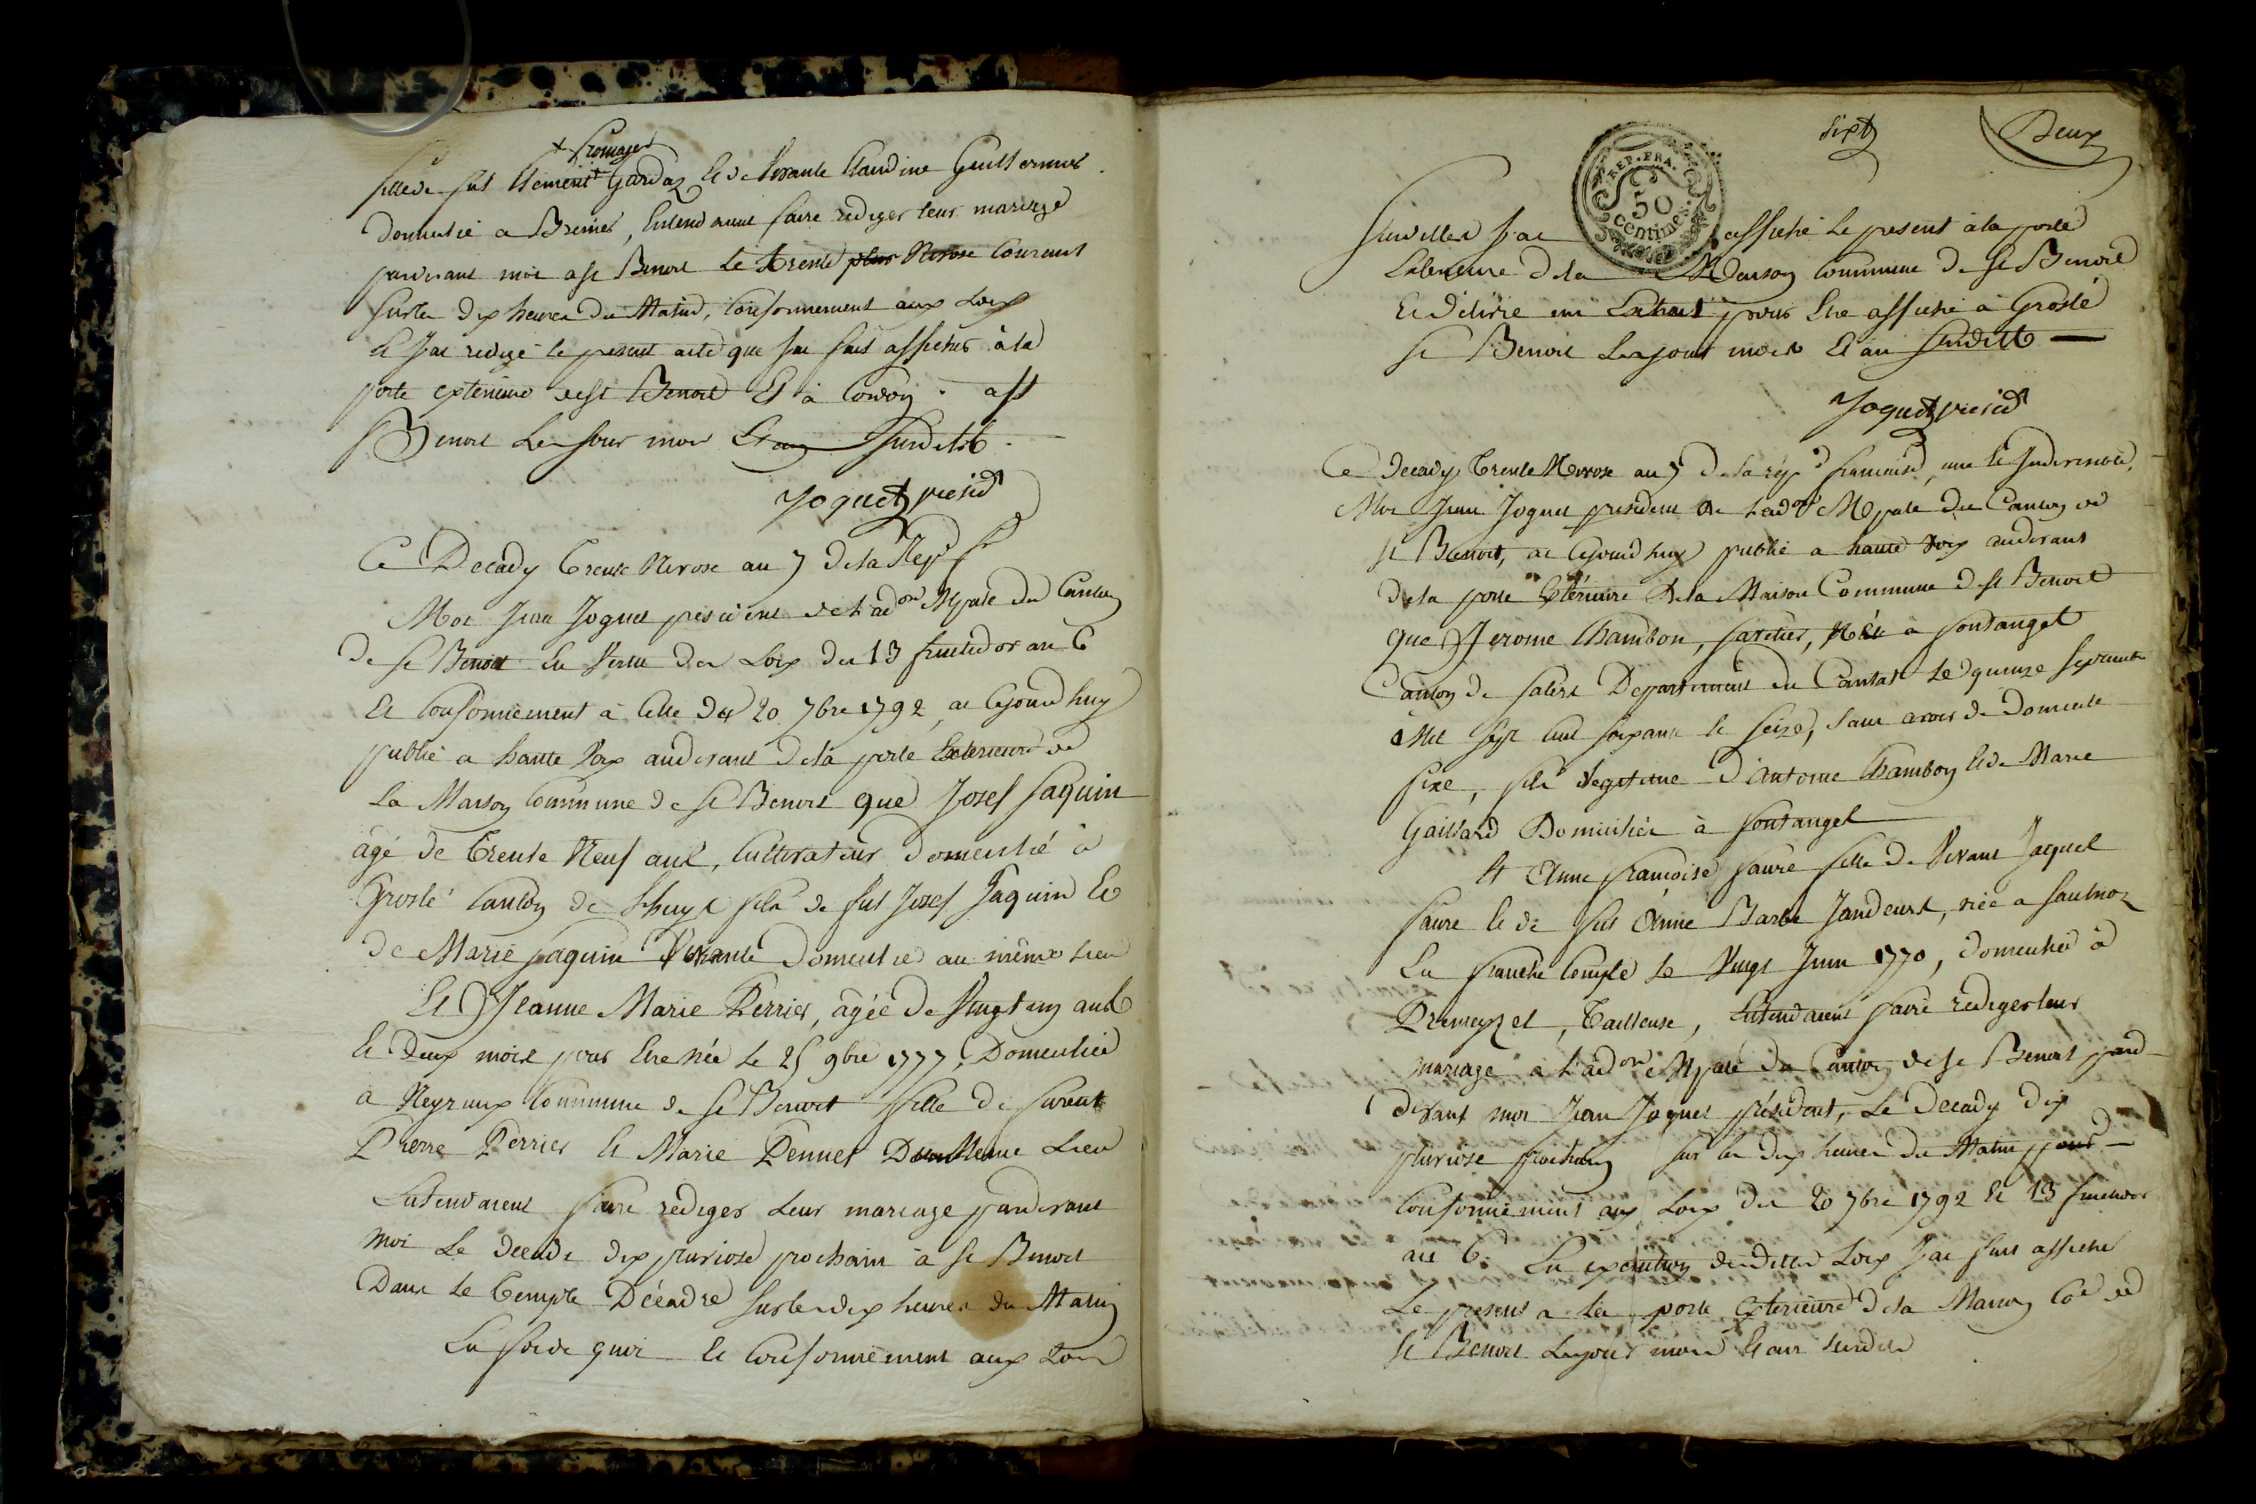 + fromager
fille de fut Clement + Gardaz Et de Vivante Claudine Guillermet
Domicilié a Brenier, Entendanne faire rediger leur mariage
pardevant moi a St Benoit Le trente Nivose Courant
sur les dix heures du Matin, Conformement aux Loix
Et J'ai redigé le présent acte que J'ai fait afficher à la
porte exterieure de St Benoit Et à Cordon. a St
Benoit Les Jour mois Et an Susdits.
Joguet présid
Ce Decady trente Nivose an 7 de la Rep fr
Moi Jean Joguet président de L'adon Mpale du Canton
de St Benoit En Vertu des Loix du 13 fructidor an 6
Et Conformement à Celle des 20 7bre 1792, ai Cejourd'huy
publié a haute Voix audevant de la porte Exterieure de
La Maison Commune de St Benoit que Josef Jaquin
âgé de trente Neuf ans, Cultivateur Domicilié à
Groslé Canton de Lhuys fils de fut Josef Jaquin Et
de Marie Jaquin Vivante Domiciliée au même Lieu
Et Jeanne Marie Perrier, âgée de Vingt un ans
Et Deux mois pour Etre née le 25 9bre 1777, Domiciliée
a Neyrieux Commune de St Benoit fille de furent
Pierre Perrier Et Marie Pennet Du Meme Lieu
Entendaient faire rediger Leur mariage pardevant
moi Le decade dix pluviose prochain à St Benoit
Dans Le Temple Décadre sur les dix heures du Matin
En foi de quoi Et Conformement aux Loix
sept
Deux
REP. FRA.
50
Centimes
susdittes J'ai affiché Le present à la porte
Exterieure de la Maison Commune de St Benoit
Et Délivré un Extrait pour Etre affiché à Groslé
St Benoit Les jour mois Et an Susdits
Joguet présid
Ce Decady trente Nivose an 7 de la rép. française, une Et Indivisible,
Moi Jean Joguet president de L'adon Mpale du Canton de
St Benoit, ai Cejourd'huy publié a haute Voix audevant
de la porte Extérieure de la Maison Commune de St Benoit
que Jerome Chambon, Né à fontanget
Canton de Salers Departement du Cantal Le quinze Septembre
Mil sept cent soixante Et seize, sans avoir de Domicile
fixe, fils legitime d'Antoine Chambon Et de Marie
Gaillard Domiciliés à fontanget
Et Anne françoise faure fille de Vivant Jacques
faure Et de fut Anne Barbe Jandeurs, née a Saulnoz
En franche Compté Le Vingt Juin 1770, domiciliée à
Premeyzel, Tailleuse, Entendaient faire rediger leur
mariage à L'adon Mpale du Canton de St Benoit par
devant moi Jean Joguet président, Le Decady dix
pluviose prochain sur les dix heures du Matin
Conformement aux Loix des 20 7bre 1792 Et 13 fructidor
an 6. En execution desdittes Loix J'ai fait affiché
Le present a la porte exterieure de la Maison Coe de
St Benoit Les jour mois Et an susdits